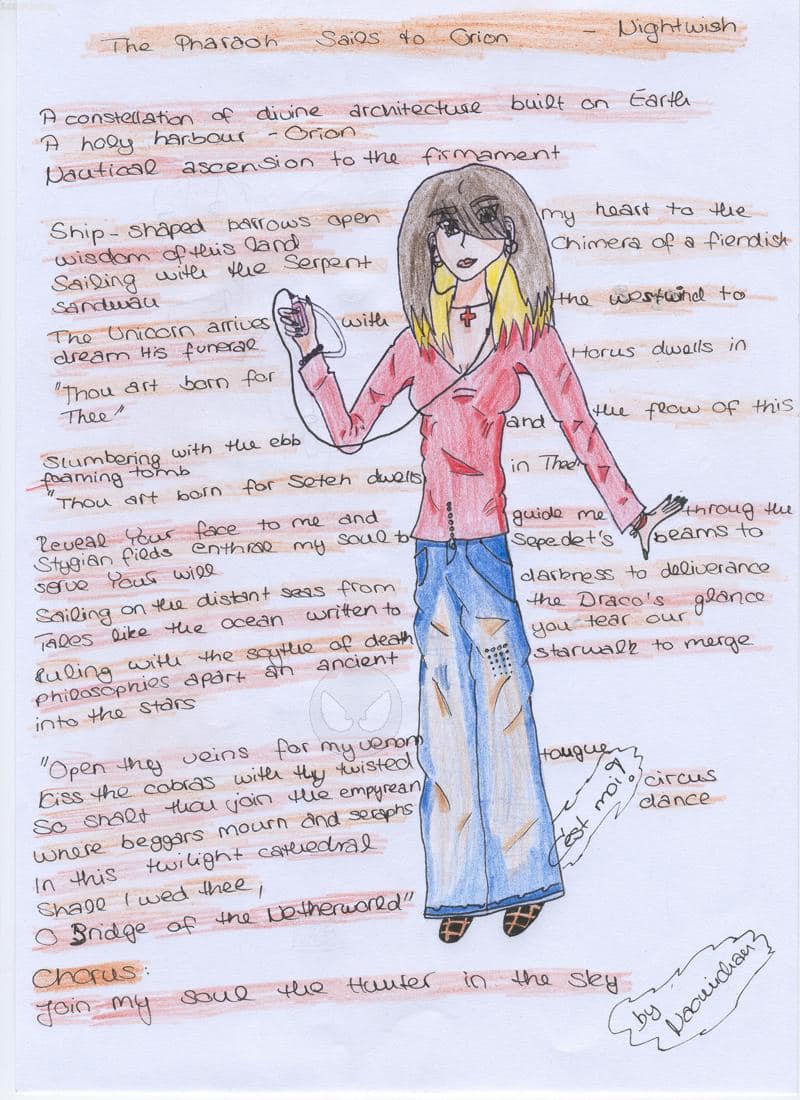 The Pharaoh Sails to Orion - Nightwish
A constellation of divine architecture built on Earth
A holy harbour - Orion
Nautical ascension to the firmament
Ship-shaped barrows open my heart to the
wisdom of this land Chimera of a fiendish
Sailing with the Serpent
Sandwau the westwind to
The Unicorn arrives with
dream His funeral Horus dwells in
"Thou art born for
Thee"
Slumbering with the ebb and the flow of this
foaming tomb
"Thou art born for Seteh dwells in Thee"
Reveal Your face to me and guide me throug the
Stygian fields enthral my soul to Sepedet's beams to
serve Your will
Sailing on the distant seas from darkness to deliverance
Tales like the ocean written to the Draco's glance
Ruling with the scythe of death you tear our
philosophies apart an ancient starwalk to merge
into the stars
"Open thy veins for my venom tongue
Kiss the cobras with thy twisted
So shalt thou join the empyrean circus
where beggars mourn and seraphs dance
In this twilight cathedral
Shall I wed thee,
O Bridge of the Netherworld"
C'est moi!
Chorus:
Join my soul the Hunter in the Sky
by
Naomichan